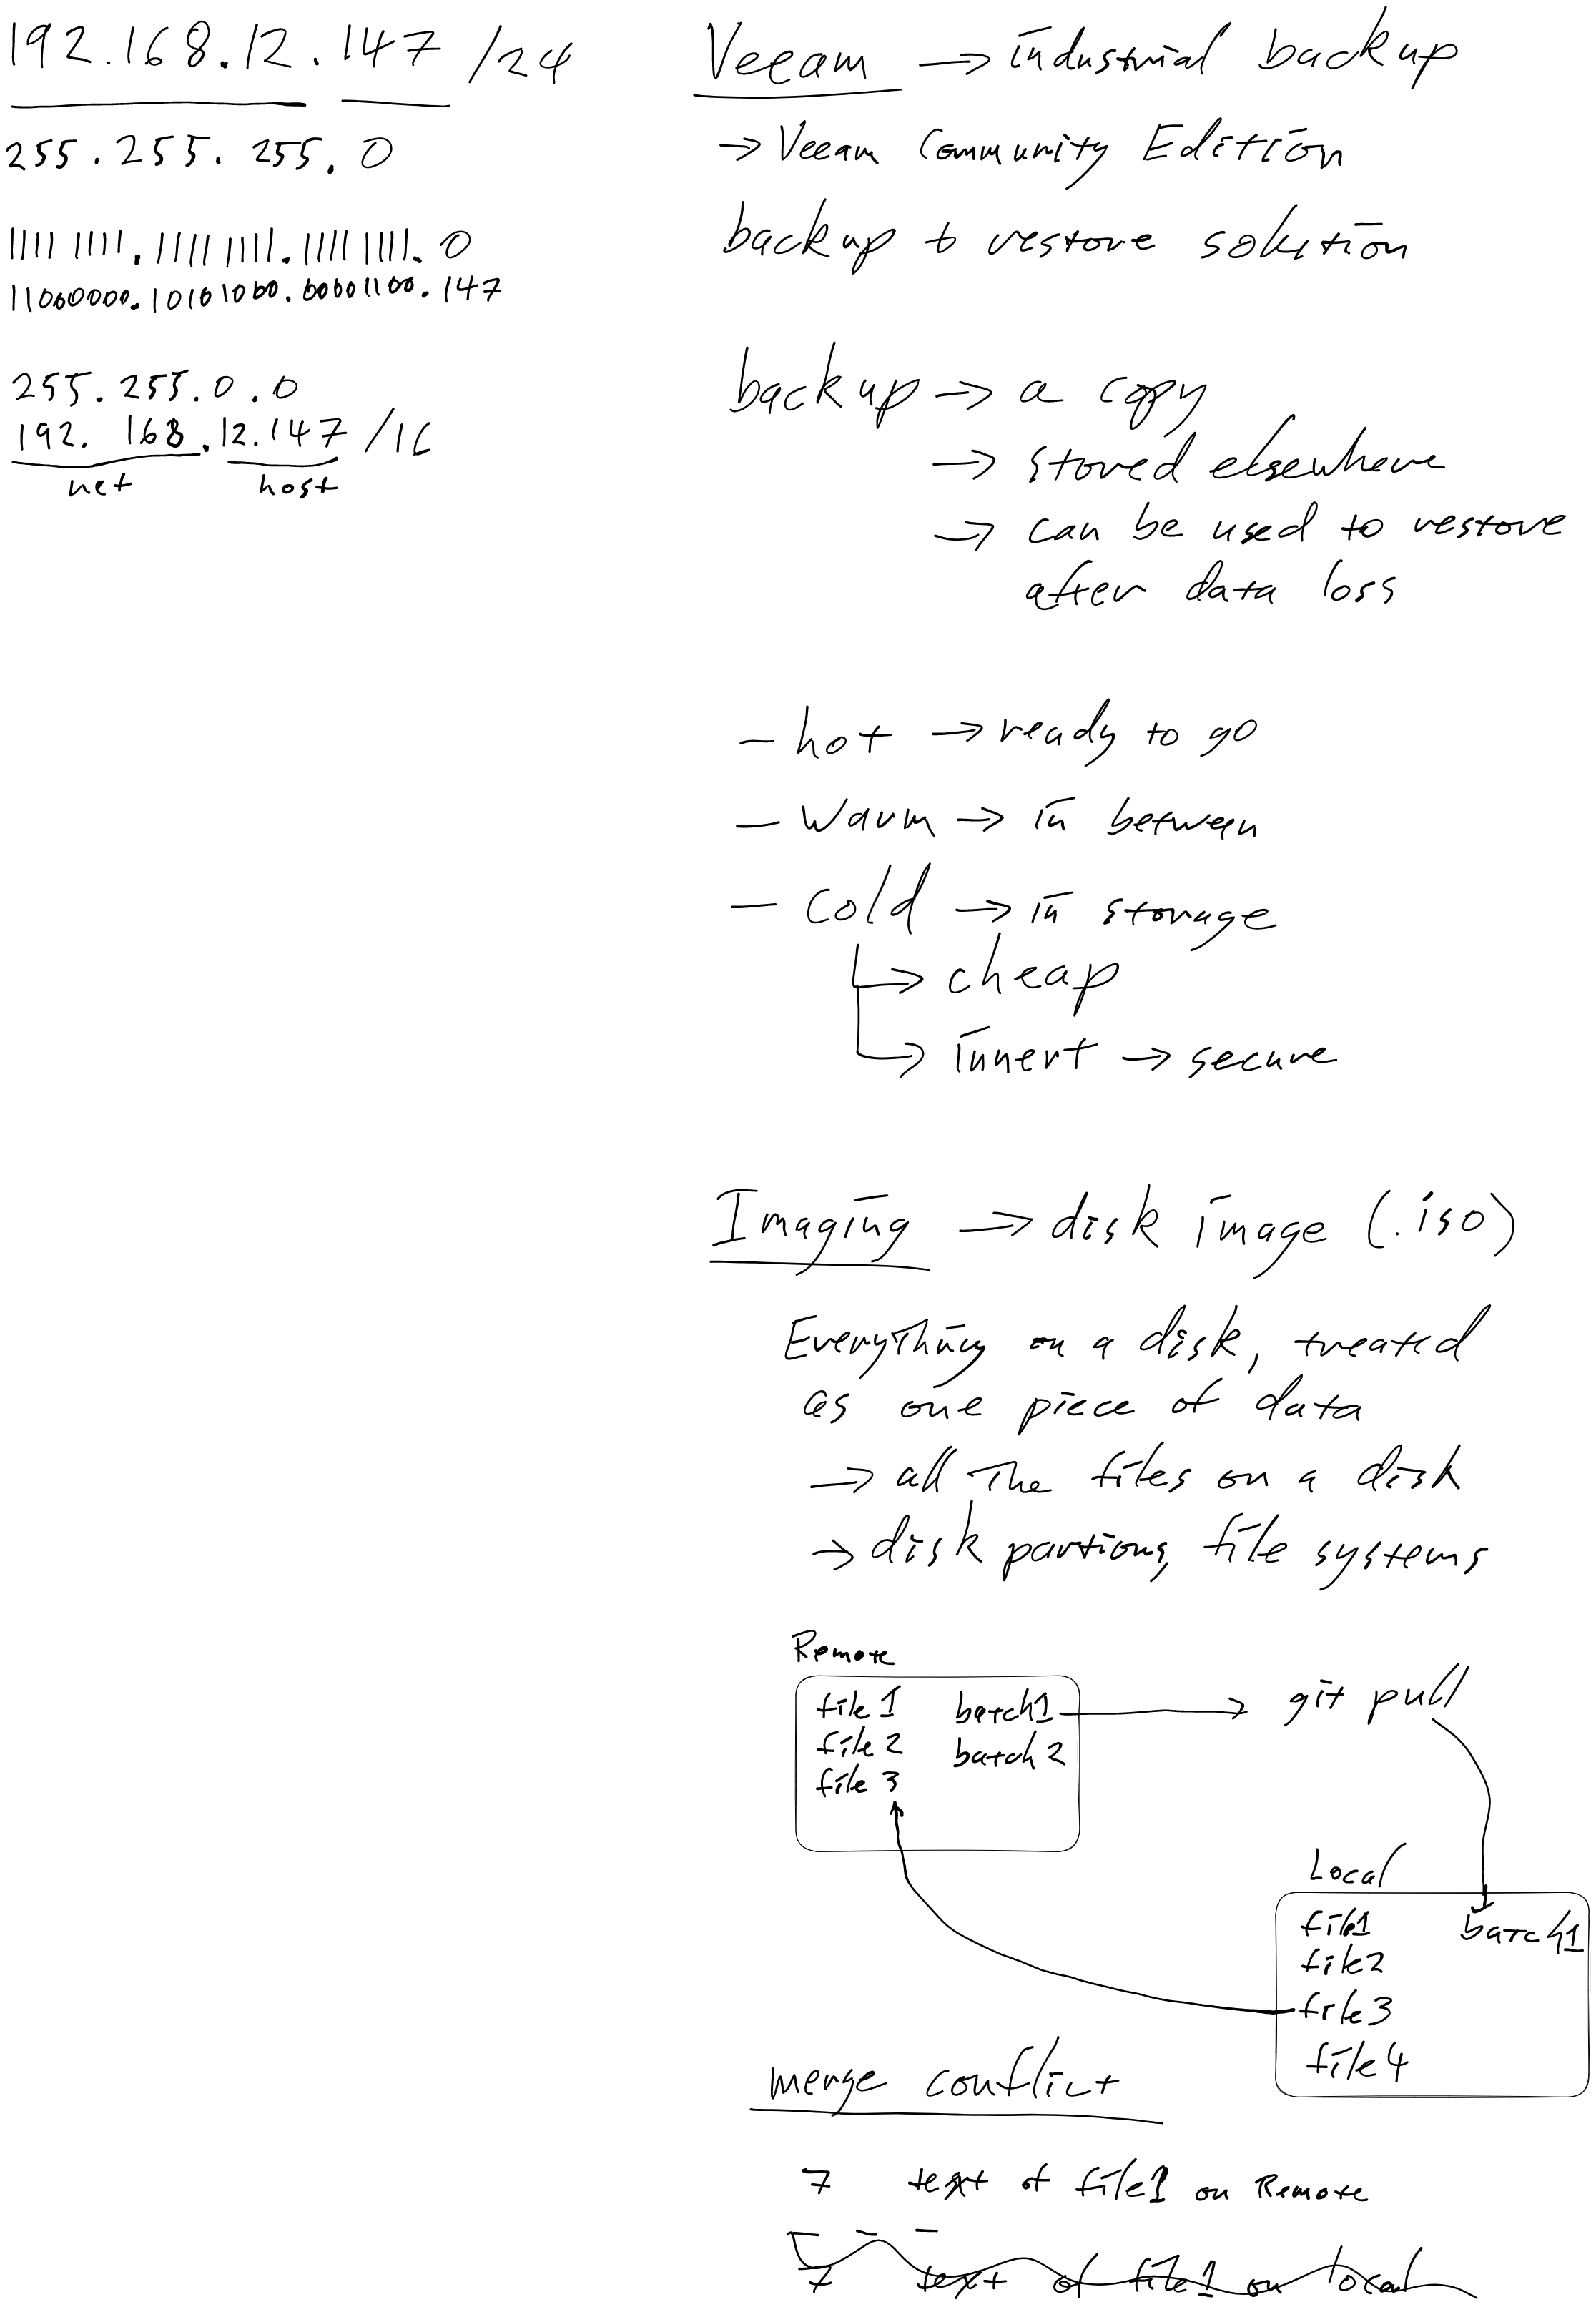 192.168.12.147 /24
255.255.255.0
11111111.11111111.11111111.0
11000000.10101000.00001100.147
255.255.0.0
192.168.12.147 /16
net host
Veeam → industrial backup
→ Veeam Community Edition
backup & restore solution
backup → a copy
→ stored elsewhere
→ can be used to restore
after data loss
- hot → ready to go
- warm → in between
- cold → in storage
→ cheap
→ innert → secure
Imaging → disk image (.iso)
Everything on a disk, treated
as one piece of data
→ all the files on a disk
→ disk partions, file systems
Remote
file 1 batch1 → git pull
file 2 batch 2
file 3
Local
file1 batch1
file2
file3
file4
merge conflict
7 text of file1 on Remote
- - -
7 text of file1 on local